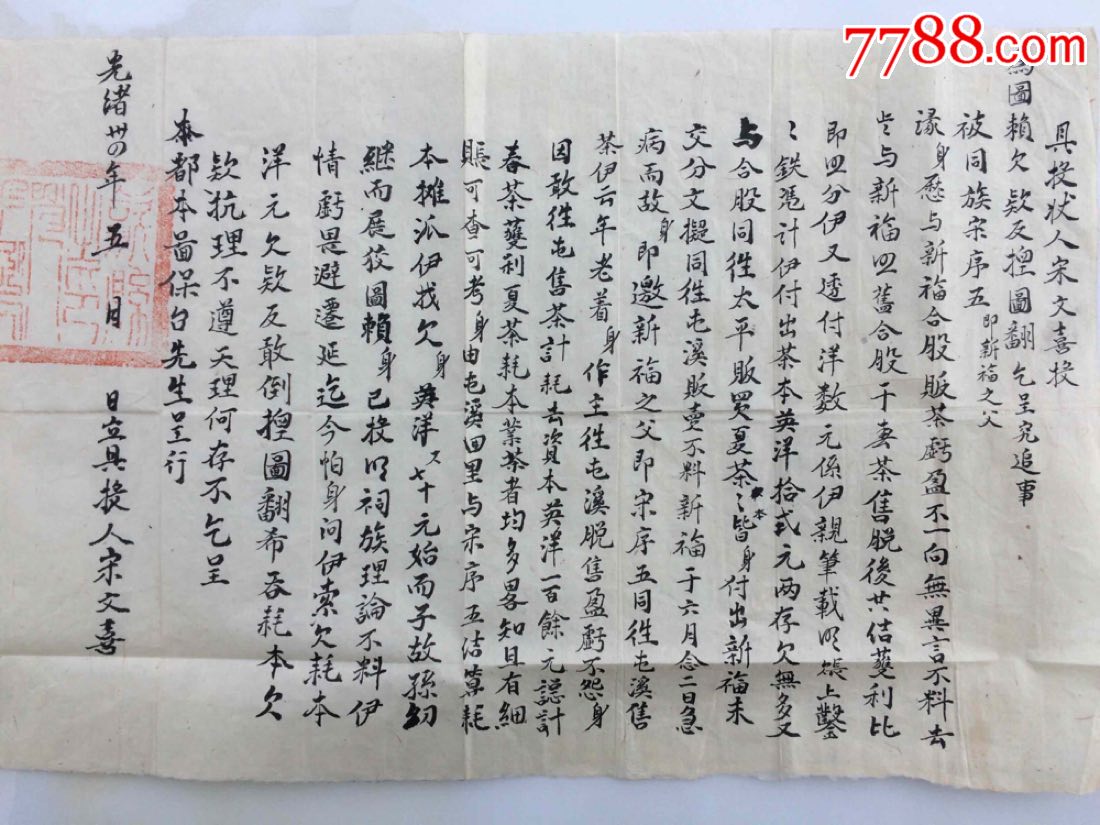 7788.com
具投狀人宋文喜投
為圖賴欠欵反揑圖翻乞呈究追事
被同族宋序五即新福之父
緣身愿與新福合股販茶虧盈不一向無異言不料去
與新福照舊合股于春茶售脫後共佸獲利比
即照分伊又透付洋數元係伊親筆載明賬上鑿
〻鉄憑計伊付出茶本英洋拾弍元两存欠無多又
与合股同徃太平販買夏茶〻本皆身付出新福未
交分文擬同徃屯溪販賣不料新福于六月念二日急
病而故身即邀新福之父即宋序五同徃屯溪售
茶伊云年老着身作主徃屯溪脫售盈虧不怨身
因敢徃屯售茶計耗去資本英洋一百餘元總計
春茶獲利夏茶耗本業茶者均多畧知且有細
賬可查可考身由屯溪回里与宋序五結算耗
本攤派伊找欠身英洋〤七十元始而子故孫幼
継而屡發圖賴身已投明祠族理論不料伊
情虧畏避遷延迄今怕身问伊索欠耗本
洋元欠欵反敢倒揑圖翻希吞耗本欠
欵抗理不遵天理何存不乞呈
本都本啚保台先生呈行
光緒卅四年五月 日立具投人宋文喜